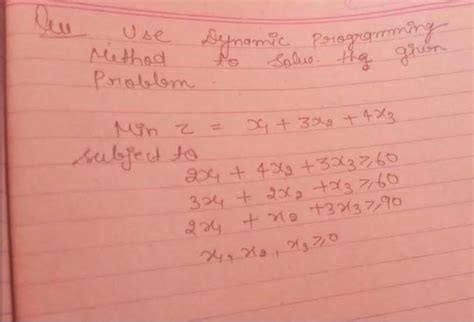 Que Use Dynamic Programming
Method to Solve the given
Problem.
Min Z = x₁ + 3x₂ + 4x₃
subject to
2x₁ + 4x₂ + 3x₃ ≥ 60
3x₁ + 2x₂ + x₃ ≥ 60
2x₁ + x₂ + 3x₃ ≥ 90
x₁, x₂, x₃ ≥ 0